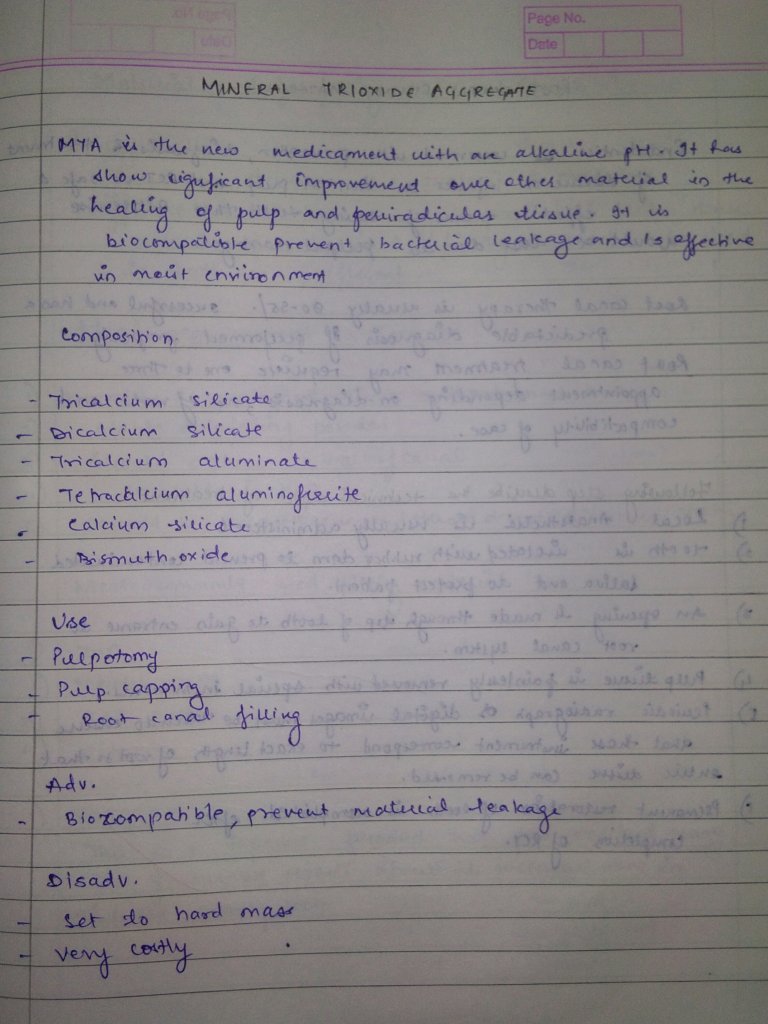 Page No.
Date
MINERAL TRIOXIDE AGGREGATE
MTA is the new medicament with an alkaline pH. It has
show significant improvement over other material in the
healing of pulp and periradicular tissue. It is
biocompatible prevent bacterial leakage and is effective
in moist environment
Composition
- Tricalcium silicate
- Dicalcium silicate
- Tricalcium aluminate
- Tetracalcium aluminoferrite
- Calcium silicate
- Bismuth oxide
Use
- Pulpotomy
- Pulp capping
- Root canal filling
Adv.
- Biocompatible, prevent material leakage
Disadv.
- Set to hard mass
- Very costly